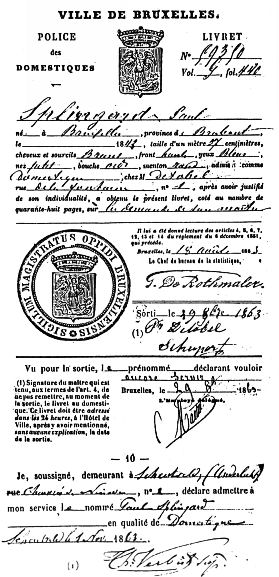 VILLE DE BRUXELLES.
POLICE
des
DOMESTIQUES
LIVRET
N°
Vol. fol. 440
Splingard Paul
né à Bruxelles, province de Brabant
le 1842, taille d'un mètre 57 centimètres,
cheveux et sourcils Brunt, front haut, yeux Bleus,
nez petit, bouche menton rond, admis comme
Domestique chez M Delobel
rue de la fontaine, n° 1, après avoir justifié
de son individualité, a obtenu le présent livret, coté au nombre de
quarante-huit pages, sur la demande de son maître
SIGILLUM MAGISTRATUS OPPIDI BRUXELLENSIS
Il lui a été donné lecture des articles 4, 5, 6, 7,
13, 15 et 14 du règlement du 6 décembre 1851,
qui précède.
Bruxelles, le 18 août 1863
Le Chef du bureau de la statistique,
G. De Rothmaler
Sorti le 29 8bre 1863
(1) Delobel
Schuport
Vu pour la sortie, le prénommé déclarant vouloir
encore servir
(1) Signature du maître qui est
tenu, aux termes de l'art. 4,
de ne pas remettre, au moment de
la sortie, le livret au domestique.
Ce livret doit être adressé
dans les 24 heures, à l'Hôtel de
Ville, après y avoir mentionné,
sans aucune explication, la date
de la sortie.
Bruxelles, le 29 8 1863
L'Employé délégué,
— 10 —
Je, soussigné, demeurant à (Anderlecht)
rue Chaussée de Ninove, n° déclare admettre à
mon service le nommé Paul Splingard
en qualité de Domestique
le 1 Nov. 1863.
(1)